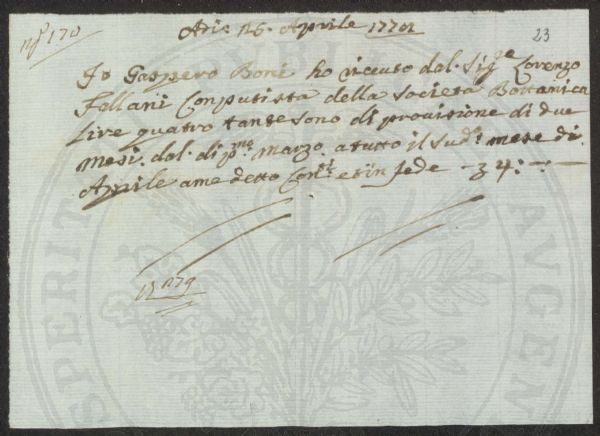 23
Adi: 26. Aprile 1770
Io Gaspero Boni ho riceuto dal. Sig.re Lorenzo
Follani Conputista della Società Bottanica
Lire quatro tante sono di provisione di due
Mesi. dal. di p.mo Marzo. a tutto il sud.o mese di
Aprile a me detto Con.ti et in fede - 4: -